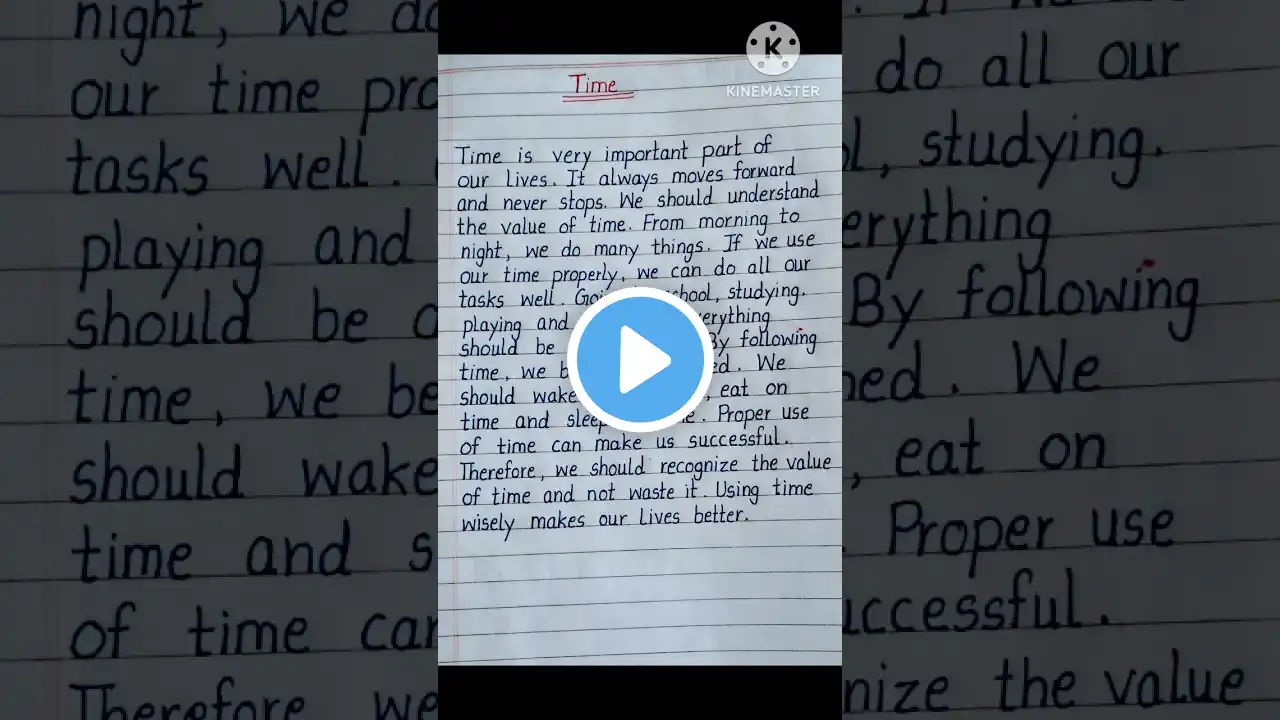 K
KINEMASTER
Time
Time is very important part of
our lives. It always moves forward
and never stops. We should understand
the value of time. From morning to
night, we do many things. If we use
our time properly, we can do all our
tasks well. studying.
playing and
should be By following
time, we We
should wake , eat on
time and Proper use
of time can make us successful.
Therefore, we should recognize the value
of time and not waste it. Using time
wisely makes our lives better.